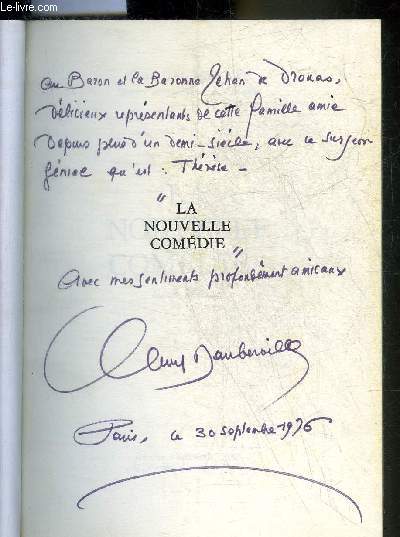 Le-livre.com
au Baron et la Baronne Jehan de Drouas,
délicieux représentants de cette famille amie
depuis plus d'un demi-siècle, avec ce surgeon
génial qu'est : Thérèse -
"LA
NOUVELLE
COMÉDIE"
avec mes sentiments profondément amicaux
Dauberville
Paris, ce 30 septembre 1976